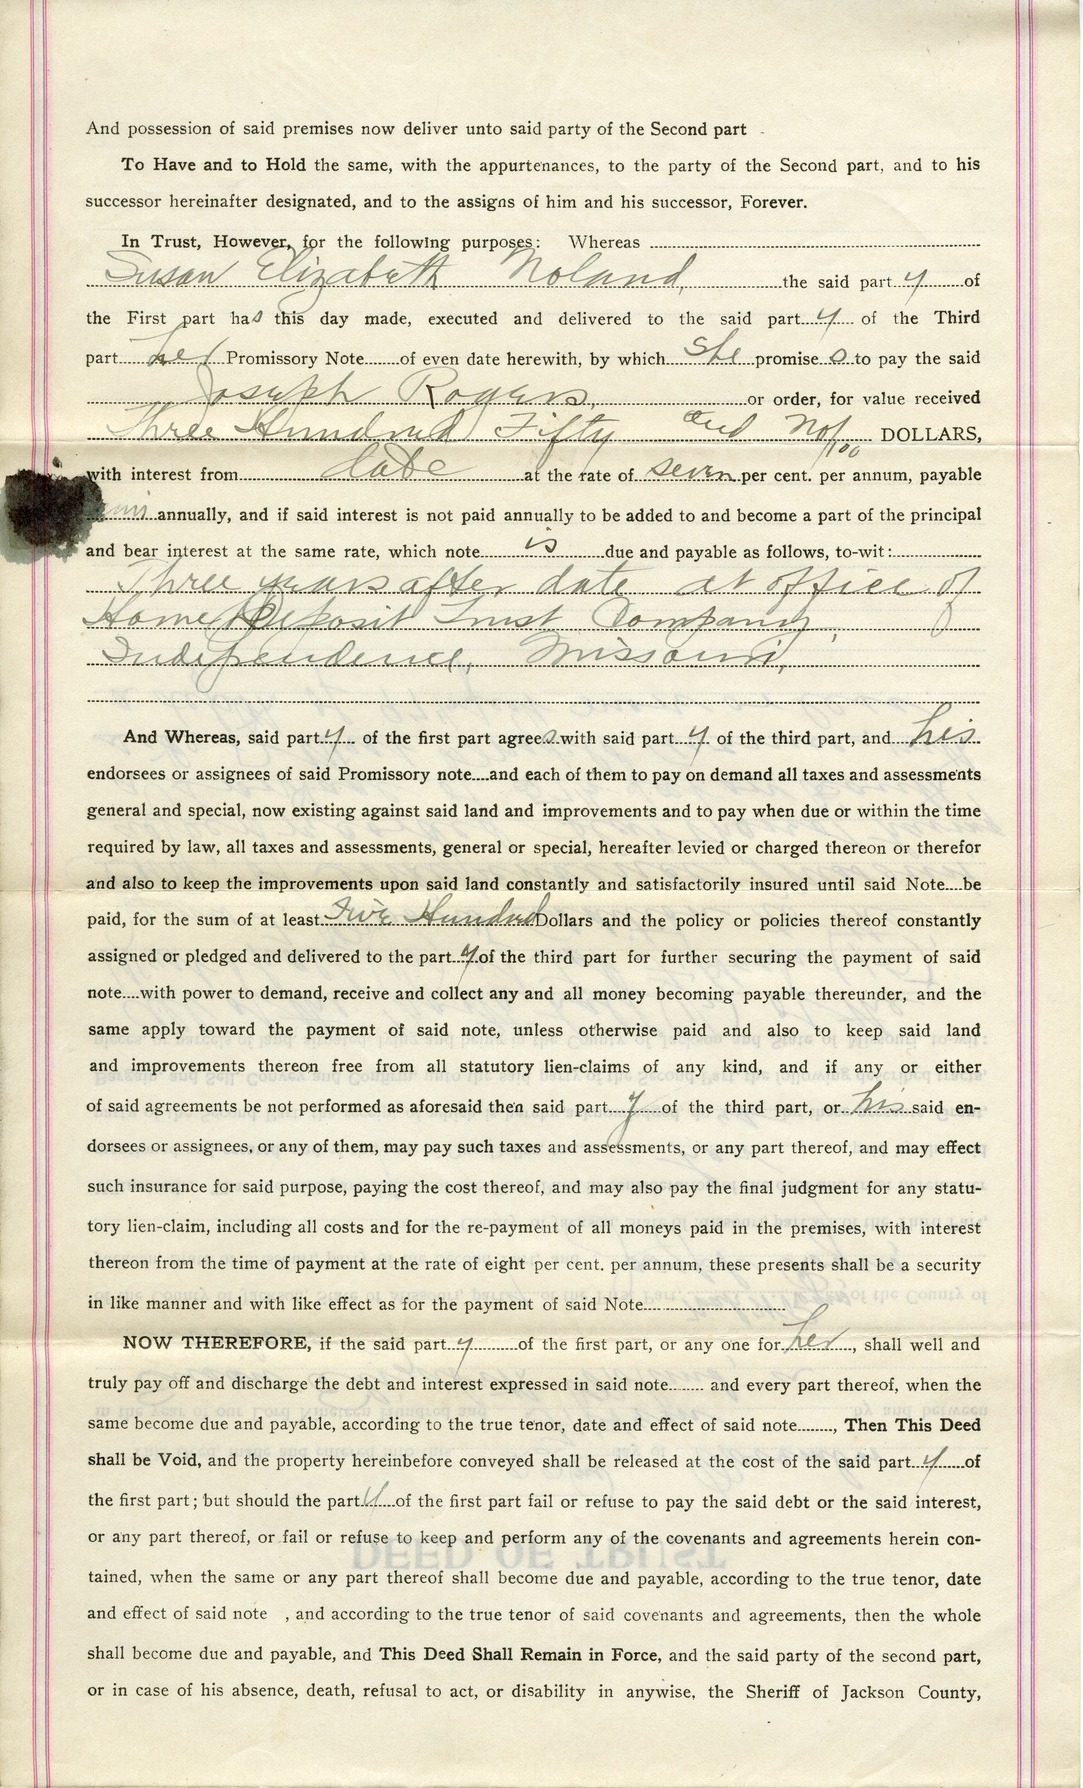 And possession of said premises now deliver unto said party of the Second part
To Have and to Hold the same, with the appurtenances, to the party of the Second part, and to his
successor hereinafter designated, and to the assigns of him and his successor, Forever.
In Trust, However, for the following purposes: Whereas
Susan Elizabeth Noland, the said party of
the First part has this day made, executed and delivered to the said party of the Third
part her Promissory Note of even date herewith, by which she promises to pay the said
Joseph Rogers, or order, for value received
Three Hundred Fifty and No/100 DOLLARS,
with interest from date at the rate of seven per cent. per annum, payable
annually, and if said interest is not paid annually to be added to and become a part of the principal
and bear interest at the same rate, which note is due and payable as follows, to-wit:
Three years after date at office of
Home Deposit Trust Company,
Independence, Missouri,
And Whereas, said party of the first part agrees with said party of the third part, and his
endorsees or assignees of said Promissory note....and each of them to pay on demand all taxes and assessments
general and special, now existing against said land and improvements and to pay when due or within the time
required by law, all taxes and assessments, general or special, hereafter levied or charged thereon or therefor
and also to keep the improvements upon said land constantly and satisfactorily insured until said Note....be
paid, for the sum of at least Five Hundred Dollars and the policy or policies thereof constantly
assigned or pledged and delivered to the party of the third part for further securing the payment of said
note....with power to demand, receive and collect any and all money becoming payable thereunder, and the
same apply toward the payment of said note, unless otherwise paid and also to keep said land
and improvements thereon free from all statutory lien-claims of any kind, and if any or either
of said agreements be not performed as aforesaid then said party of the third part, or his said en-
dorsees or assignees, or any of them, may pay such taxes and assessments, or any part thereof, and may effect
such insurance for said purpose, paying the cost thereof, and may also pay the final judgment for any statu-
tory lien-claim, including all costs and for the re-payment of all moneys paid in the premises, with interest
thereon from the time of payment at the rate of eight per cent. per annum, these presents shall be a security
in like manner and with like effect as for the payment of said Note....
NOW THEREFORE, if the said party of the first part, or any one for her, shall well and
truly pay off and discharge the debt and interest expressed in said note........ and every part thereof, when the
same become due and payable, according to the true tenor, date and effect of said note........, Then This Deed
shall be Void, and the property hereinbefore conveyed shall be released at the cost of the said party of
the first part; but should the party of the first part fail or refuse to pay the said debt or the said interest,
or any part thereof, or fail or refuse to keep and perform any of the covenants and agreements herein con-
tained, when the same or any part thereof shall become due and payable, according to the true tenor, date
and effect of said note , and according to the true tenor of said covenants and agreements, then the whole
shall become due and payable, and This Deed Shall Remain in Force, and the said party of the second part,
or in case of his absence, death, refusal to act, or disability in anywise, the Sheriff of Jackson County,